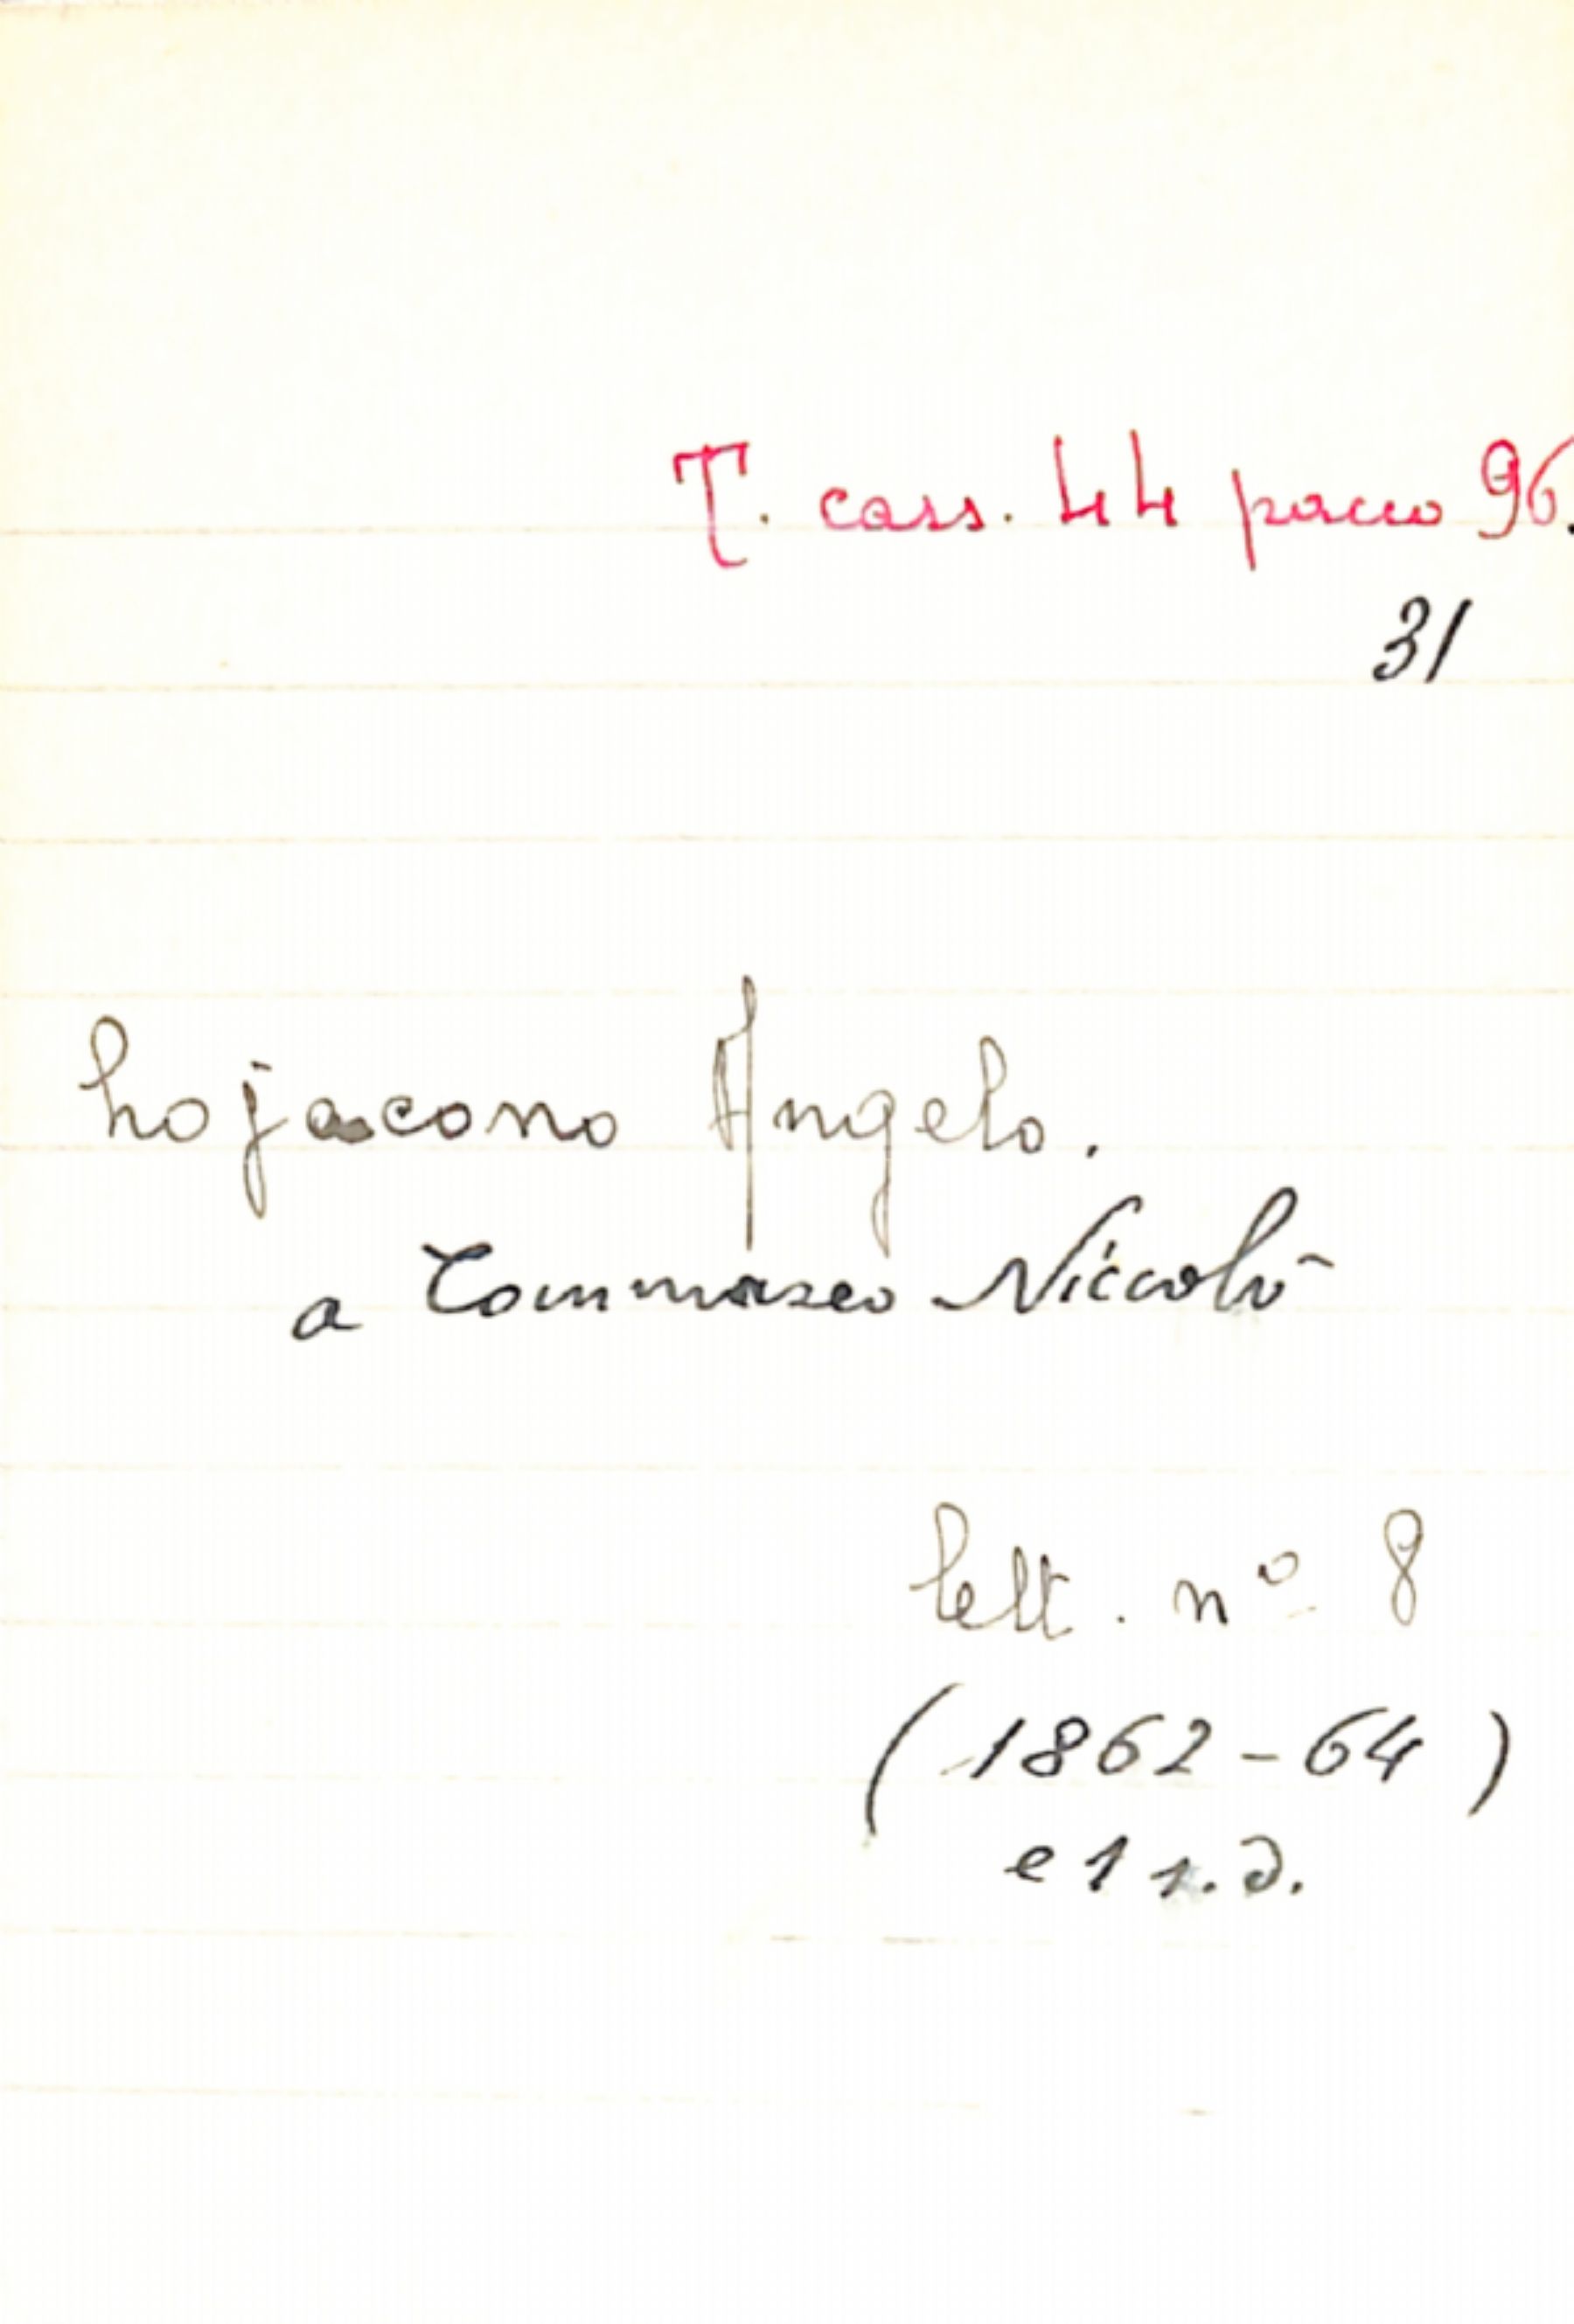 T. cass. 44 pacco 96.
31
Lojacono Angelo.
a Tommaseo Niccolò
lett. nº 8
(1862-64)
e 1 s.d.